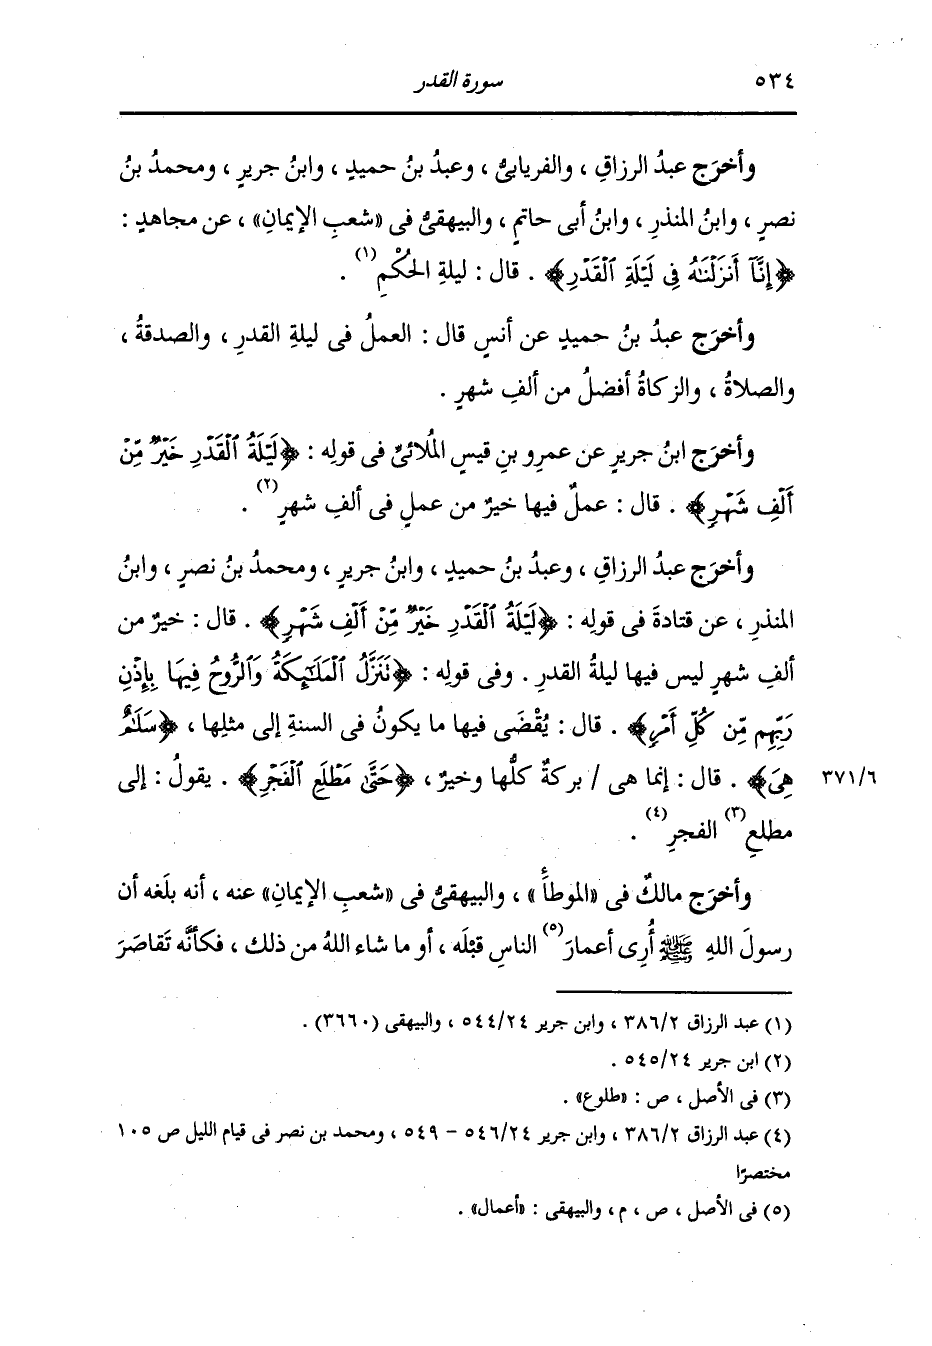 ٥٣٤ سورة القدر
وأخرَج عبدُ الرزاقِ ، والفريابىُّ ، وعبدُ بنُ حميدٍ ، وابنُ جريرٍ ، ومحمدُ بنُ
نصرٍ ، وابنُ المنذرِ ، وابنُ أبى حاتمٍ ، والبيهقىُّ فى «شعبِ الإيمانِ» ، عن مجاهدٍ :
﴿إِنَّآ أَنزَلْنَٰهُ فِى لَيْلَةِ ٱلْقَدْرِ﴾ . قال : ليلةِ الحُكْمِ(١) .
وأخرَج عبدُ بنُ حميدٍ عن أنسٍ قال : العملُ فى ليلةِ القدرِ ، والصدقةُ ،
والصلاةُ ، والزكاةُ أفضلُ من ألفِ شهرٍ .
وأخرَج ابنُ جريرٍ عن عمرِو بنِ قيسٍ المُلائىِّ فى قولِه : ﴿لَيْلَةُ ٱلْقَدْرِ خَيْرٌ مِّنْ
أَلْفِ شَهْرٍ﴾ . قال : عملٌ فيها خيرٌ من عملٍ فى ألفِ شهرٍ(٢) .
وأخرَج عبدُ الرزاقِ ، وعبدُ بنُ حميدٍ ، وابنُ جريرٍ ، ومحمدُ بنُ نصرٍ ، وابنُ
المنذرِ ، عن قتادةَ فى قولِه : ﴿لَيْلَةُ ٱلْقَدْرِ خَيْرٌ مِّنْ أَلْفِ شَهْرٍ﴾ . قال : خيرٌ من
ألفِ شهرٍ ليس فيها ليلةُ القدرِ . وفى قولِه : ﴿نَنَزَّلُ ٱلْمَلَٰٓئِكَةُ وَٱلرُّوحُ فِيهَا بِإِذْنِ
رَبِّهِم مِّن كُلِّ أَمْرٍ﴾ . قال : يُقْضَى فيها ما يكونُ فى السنةِ إلى مثلِها ، ﴿سَلَٰمٌ
هِىَ﴾ . قال : إنما هى / بركةٌ كلُّها وخيرٌ ، ﴿حَتَّىٰ مَطْلَعِ ٱلْفَجْرِ﴾ . يقولُ : إلى ٣٧١/٦
مطلعِ(٣) الفجرِ(٤) .
وأخرَج مالكٌ فى «الموطأَ» ، والبيهقىُّ فى «شعبِ الإيمانِ» عنه ، أنه بلَغه أن
رسولَ اللهِ ﷺ أُرِى أعمارَ(٥) الناسِ قبْلَه ، أو ما شاء اللهُ من ذلك ، فكأنَّه تَقاصَرَ
(١) عبد الرزاق ٣٨٦/٢ ، وابن جرير ٥٤٤/٢٤ ، والبيهقى (٣٦٦٠) .
(٢) ابن جرير ٥٤٥/٢٤ .
(٣) فى الأصل ، ص : «طلوع» .
(٤) عبد الرزاق ٣٨٦/٢ ، وابن جرير ٥٤٦/٢٤ - ٥٤٩ ، ومحمد بن نصر فى قيام الليل ص ١٠٥
مختصرًا
(٥) فى الأصل ، ص ، م ، والبيهقى : «أعمال» .